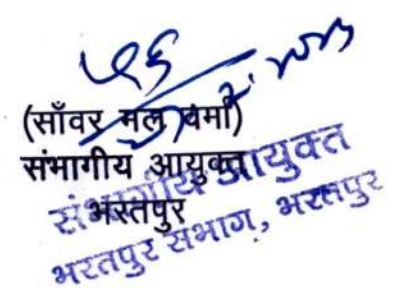 (साँवर मल वर्मा)
संभागीय आयुक्त
भरतपुर
संभागीय आयुक्त
भरतपुर संभाग, भरतपुर